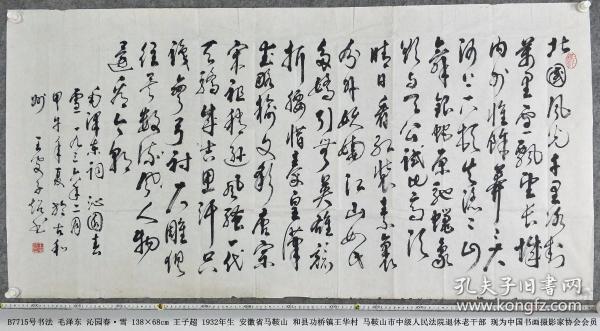 北國風光千里冰封
萬里雪飄望長城
内外惟餘莽莽大
河上下頓失滔滔山
舞銀蛇原馳蠟象
欲與天公試比高須
晴日看紅裝素裹
分外妖嬈江山如此
多嬌引無數英雄競
折腰惜秦皇漢
武略輸文彩唐宗
宋祖稍遜風騷一代
天驕成吉思汗只
識彎弓射大雕俱
往矣數風流人物
還看今朝
毛澤東詞 沁園春
雪一九三六年二月
甲午年夏於古和
州 王子超書
孔夫子旧书网
B7715号书法 毛泽东 沁园春·雪 138×68cm 王子超 1932年生 安徽省马鞍山 和县功桥镇王华村 马鞍山市中级人民法院退休老干部 现为中国书画摄影家协会会员